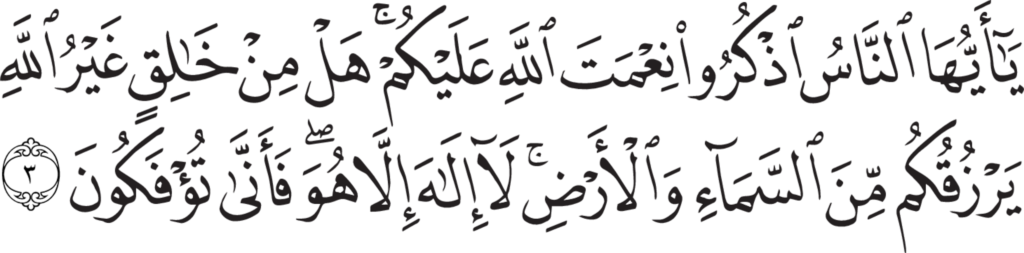 يَـٰٓأَيُّهَا ٱلنَّاسُ ٱذْكُرُوا۟ نِعْمَتَ ٱللَّهِ عَلَيْكُمْ ۚ هَلْ مِنْ خَـٰلِقٍ غَيْرُ ٱللَّهِ
يَرْزُقُكُم مِّنَ ٱلسَّمَآءِ وَٱلْأَرْضِ ۚ لَآ إِلَـٰهَ إِلَّا هُوَ ۖ فَأَنَّىٰ تُؤْفَكُونَ ٣